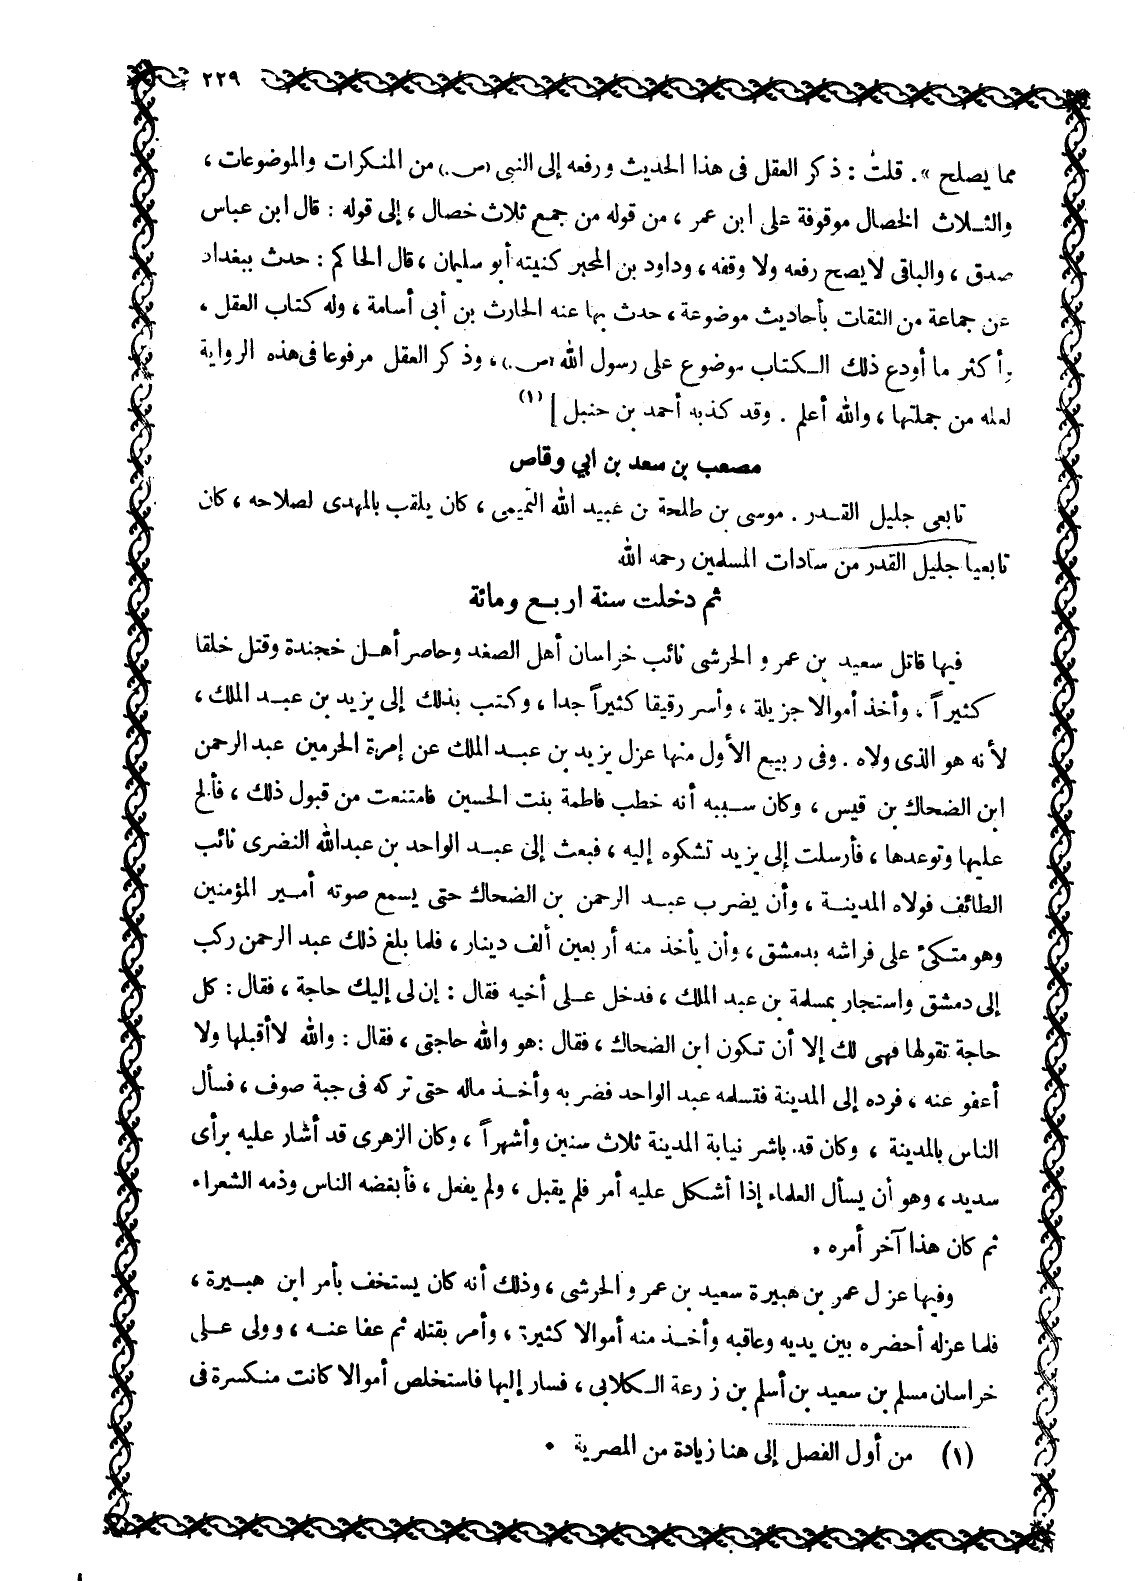 ٢٢٩
مما يصلح ». قلت : ذكر العقل فى هذا الحديث ورفعه إلى النبى (ص.) من المنكرات والموضوعات ،
والثلاث الخصال موقوفة على ابن عمر ، من قوله من جمع ثلاث خصال ، إلى قوله : قال ابن عباس
صدق ، والباقى لا يصح رفعه ولا وقفه ، وداود بن المحبر كنيته أبو سليمان ، قال الحاكم : حدث ببغداد
عن جماعة من الثقات بأحاديث موضوعة ، حدث بها عنه الحارث بن أبى أسامة ، وله كتاب العقل ،
وأكثر ما أودع ذلك الكتاب موضوع على رسول الله (ص.) ، وذكر العقل مرفوعا فى هذه الرواية
لعله من جملتها ، والله أعلم . وقد كذبه أحمد بن حنبل ] (١)
مصعب بن سعد بن ابي وقاص
تابعى جليل القدر . موسى بن طلحة بن عبيد الله التميمى ، كان يلقب بالمهدى لصلاحه ، كان
تابعيا جليل القدر من سادات المسلمين رحمه الله
ثم دخلت سنة اربع ومائة
فيها قاتل سعيد بن عمرو الحرشى نائب خراسان أهل الصغد وحاصر أهل خجندة وقتل خلقا
كثيراً ، وأخذ أموالا جزيلة ، وأسر رقيقا كثيراً جدا ، وكتب بذلك إلى يزيد بن عبد الملك ،
لأنه هو الذى ولاه . وفى ربيع الأول منها عزل يزيد بن عبد الملك عن إمرة الحرمين عبد الرحمن
ابن الضحاك بن قيس ، وكان سببه أنه خطب فاطمة بنت الحسين فامتنعت من قبول ذلك ، فألح
عليها وتوعدها ، فأرسلت إلى يزيد تشكوه إليه ، فبعث إلى عبد الواحد بن عبد الله النضرى نائب
الطائف فولاه المدينة ، وأن يضرب عبد الرحمن بن الضحاك حتى يسمع صوته أمير المؤمنين
وهو متكئ على فراشه بدمشق ، وأن يأخذ منه أربعين ألف دينار ، فلما بلغ ذلك عبد الرحمن ركب
إلى دمشق واستجار بمسلمة بن عبد الملك ، فدخل على أخيه فقال : إن لى إليك حاجة ، فقال : كل
حاجة تقولها فهى لك إلا أن تكون ابن الضحاك ، فقال : هو والله حاجتى ، فقال : والله لا أقبلها ولا
أعفو عنه ، فرده إلى المدينة فتسلمه عبد الواحد فضربه وأخذ ماله حتى تركه فى جبة صوف ، فسأل
الناس بالمدينة ، وكان قد باشر نيابة المدينة ثلاث سنين وأشهراً ، وكان الزهرى قد أشار عليه برأى
سديد ، وهو أن يسأل العلماء إذا أشكل عليه أمر فلم يقبل ، ولم يفعل ، فأبغضه الناس وذمه الشعراء
ثم كان هذا آخر أمره .
وفيها عزل عمر بن هبيرة سعيد بن عمرو الحرشى ، وذلك أنه كان يستخف بأمر ابن هبيرة ،
فلما عزله أحضره بين يديه وعاقبه وأخذ منه أموالا كثيرة ، وأمر بقتله ثم عفا عنه ، وولى على
خراسان مسلم بن سعيد بن أسلم بن زرعة الكلابي ، فسار إليها فاستخلص أموالا كانت منكسرة فى
(١) من أول الفصل إلى هنا زيادة من المصرية .